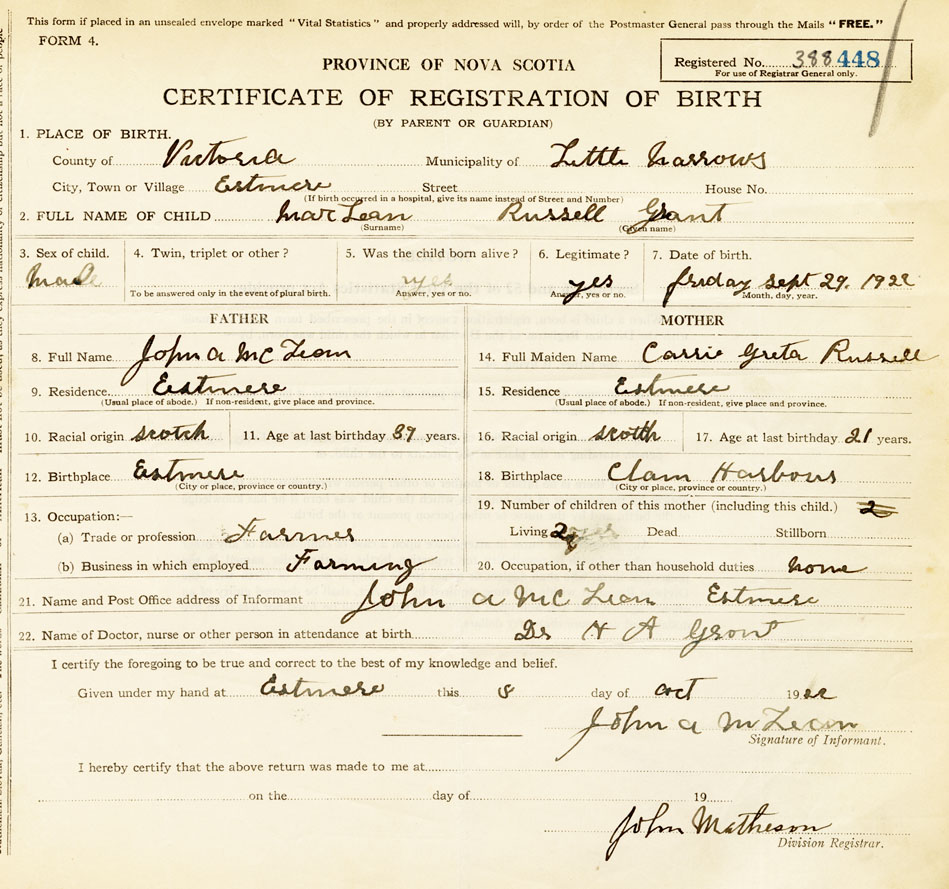 This form if placed in an unsealed envelope marked "Vital Statistics" and properly addressed will, by order of the Postmaster General pass through the Mails "FREE."
FORM 4.
Registered No. 388448
For use of Registrar General only.
PROVINCE OF NOVA SCOTIA
CERTIFICATE OF REGISTRATION OF BIRTH
(BY PARENT OR GUARDIAN)
1. PLACE OF BIRTH.
County of Victoria Municipality of Little Narrows
City, Town or Village Estmere Street House No.
(If birth occurred in a hospital, give its name instead of Street and Number)
2. FULL NAME OF CHILD MacLean Russell Grant
(Surname) (Given name)
3. Sex of child. 4. Twin, triplet or other? 5. Was the child born alive? 6. Legitimate? 7. Date of birth.
Male yes yes friday sept 29. 1922
To be answered only in the event of plural birth. Answer, yes or no. Answer, yes or no. Month, day, year.
FATHER MOTHER
8. Full Name John A McLean 14. Full Maiden Name Carrie Greta Russell
9. Residence Estmere 15. Residence Estmere
(Usual place of abode.) If non-resident, give place and province. (Usual place of abode.) If non-resident, give place and province.
10. Racial origin scotch 11. Age at last birthday 37 years. 16. Racial origin scotth 17. Age at last birthday 21 years.
12. Birthplace Estmere 18. Birthplace Clam Harbour
(City or place, province or country.) (City or place, province or country.)
19. Number of children of this mother (including this child.) 2
13. Occupation:—
Living 2 Dead Stillborn
(a) Trade or profession Farmer
(b) Business in which employed Farming 20. Occupation, if other than household duties none
21. Name and Post Office address of Informant John A McLean Estmere
22. Name of Doctor, nurse or other person in attendance at birth Dr H A Grant
I certify the foregoing to be true and correct to the best of my knowledge and belief.
Given under my hand at Estmere this 8 day of oct 1922
John A McLean
Signature of Informant.
I hereby certify that the above return was made to me at
on the day of 19
John Matheson
Division Registrar.